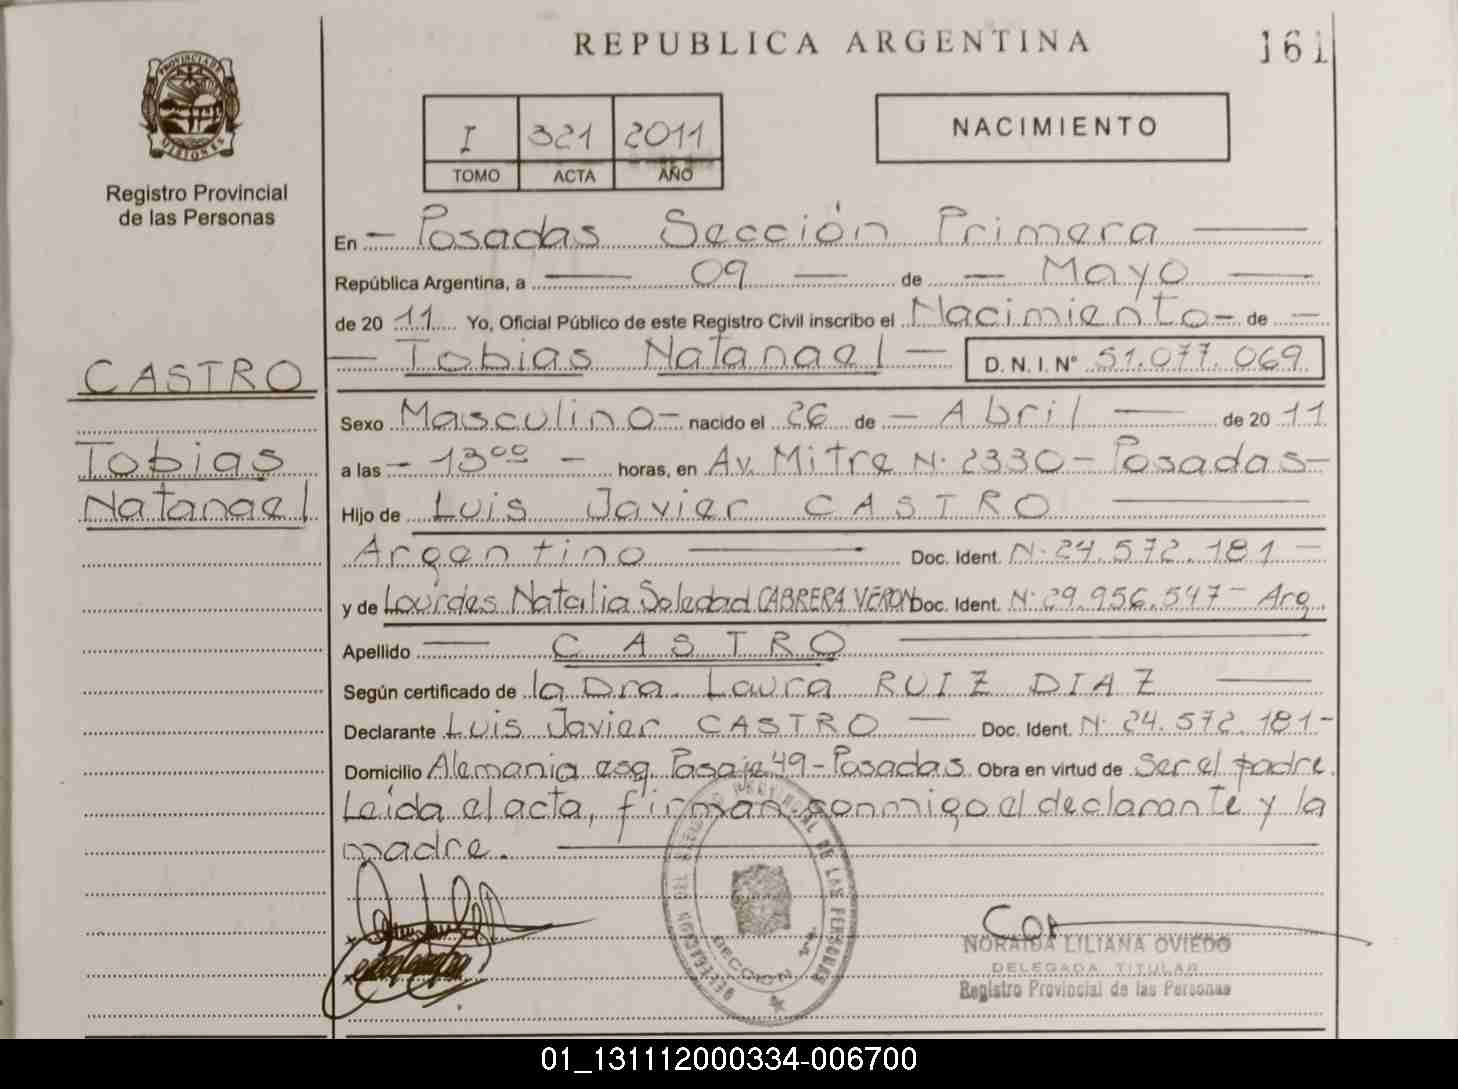 REPUBLICA ARGENTINA
161
PROVINCIA DE MISIONES
Registro Provincial
de las Personas
I 321 2011
TOMO ACTA AÑO
NACIMIENTO
En - Posadas Sección Primera
República Argentina, a 09 de Mayo
de 2011 Yo, Oficial Público de este Registro Civil inscribo el Nacimiento - de
Tobias Natanael D. N. I. Nº 51.077.069
CASTRO
Tobias
Natanael
Sexo Masculino - nacido el 26 de - Abril de 2011
a las - 13⁰⁰ - horas, en Av. Mitre N· 2330 - Posadas -
Hijo de Luis Javier CASTRO
Argentino Doc. Ident. N· 24.572.181 -
y de Lourdes Natalia Soledad CABRERA VERON Doc. Ident. N· 29.956.547 - Arg.
Apellido CASTRO
Según certificado de la Dra. Laura RUIZ DIAZ
Declarante Luis Javier CASTRO - Doc. Ident. N· 24.572.181 -
Domicilio Alemania esq. Pasaje 49 - Posadas Obra en virtud de Ser el padre.
Leída el acta, firman conmigo el declarante y la
madre.
DELEGACION DEL REGISTRO PROVINCIAL DE LAS PERSONAS
SECCION 1ª
NORAIDA LILIANA OVIEDO
DELEGADA TITULAR
Registro Provincial de las Personas
01_131112000334-006700